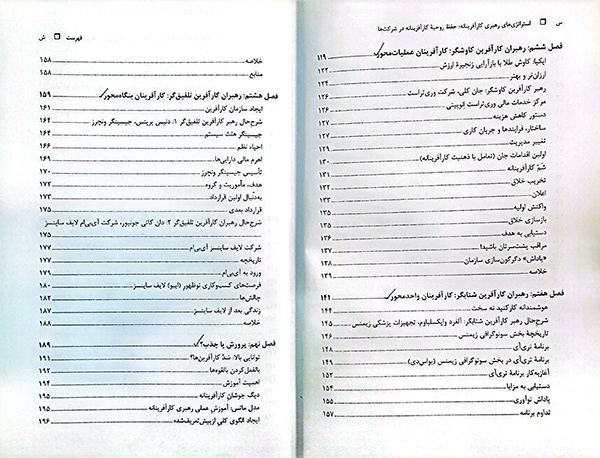 س □ استراتژی‌های رهبری کارآفرینانه: حفظ روحیهٔ کارآفرینانه در شرکت‌ها
فصل ششم: رهبران کارآفرین کاوشگر: کارآفرینان عملیات‌محور ۱۱۹
ایکیا: کاوش طلا با بازآرایی زنجیرهٔ ارزش ۱۲۲
ارزان‌تر و بهتر ۱۲۴
رهبر کارآفرین کاوشگر: جان کلی، شرکت وری‌تراست ۱۲۶
مرکز خدمات مالی وری‌تراست اِنوبیتی ۱۲۶
دستور کاهش هزینه ۱۲۷
ساختار، فرایندها و جریان کاری ۱۲۸
تغییر مدیریت ۱۲۹
اولین اقدامات جان (تعامل با ذهنیت کارآفرینانه) ۱۳۰
شمّ کارآفرینانه ۱۳۱
تخریب خلاق ۱۳۳
اعلان ۱۳۳
واکنش اولیه ۱۳۵
بازسازی خلاق ۱۳۵
دستیابی به هدف ۱۳۶
مراقب پشت‌سرتان باشید! ۱۳۷
«پاداش» دگرگون‌سازی سازمان ۱۳۸
خلاصه ۱۳۹
فصل هفتم: رهبران کارآفرین شتابگر: کارآفرینان واحدمحور ۱۴۱
هوشمندانه کارکنید نه سخت ۱۴۴
شرح‌حال رهبر کارآفرین شتابگر: آلفرد وایکسلباوم، تجهیزات پزشکی زیمنس ۱۴۵
تاریخچهٔ بخش سونوگرافی زیمنس ۱۴۶
برنامهٔ تری‌آی ۱۴۸
برنامهٔ تری‌آی در بخش سونوگرافی زیمنس (یواس‌دی) ۱۴۹
آغازبه‌کار برنامهٔ تری‌آی ۱۵۲
دستیابی به مزایا ۱۵۴
پاداش نوآوری ۱۵۵
تداوم برنامه ۱۵۷
فهرست □ ش
خلاصه ۱۵۸
منابع ۱۵۸
فصل هشتم: رهبران کارآفرین تلفیق‌گر: کارآفرینان بنگاه‌محور ۱۵۹
ایجاد سازمان کارآفرین ۱۶۱
شرح‌حال رهبر کارآفرین تلفیق‌گر ۱: دنیس پریتس، جیسینگر ونچرز ۱۶۴
جیسینگر هلث سیستم ۱۶۴
احیاء نظم ۱۶۶
اهرم مالی دارایی‌ها ۱۶۹
تأسیس جیسینگر ونچرز ۱۷۰
هدف، مأموریت و گروه ۱۷۲
به‌دنبال اولین قرارداد ۱۷۳
قرارداد بعدی ۱۷۴
شرح‌حال رهبران کارآفرین تلفیق‌گر ۲: دان کانی جونیور، شرکت آی‌بی‌ام لایف ساینسز
۱۷۵
شرکت لایف ساینسز آی‌بی‌ام ۱۷۷
تاریخچه ۱۷۷
ورود به آی‌بی‌ام ۱۷۹
فرصت‌های کسب‌وکاری نوظهور (ایبو) لایف ساینسز ۱۸۰
چالش‌ها ۱۸۲
زندگی بعد از لایف ساینسز ۱۸۷
خلاصه ۱۸۸
فصل نهم: پرورش یا جذب؟ ۱۸۹
توانایی بالا: سَدّ کارآفرین‌ها؟ ۱۹۱
بالفعل‌کردن بالقوه‌ها ۱۹۲
اهمیت آموزش ۱۹۴
دیگ جوشان کارآفرینانه ۱۹۵
مدل ماتس: آموزش عملی رهبری کارآفرینانه ۱۹۵
ایجاد الگوی کلی ازپیش‌تعریف‌شده ۱۹۶